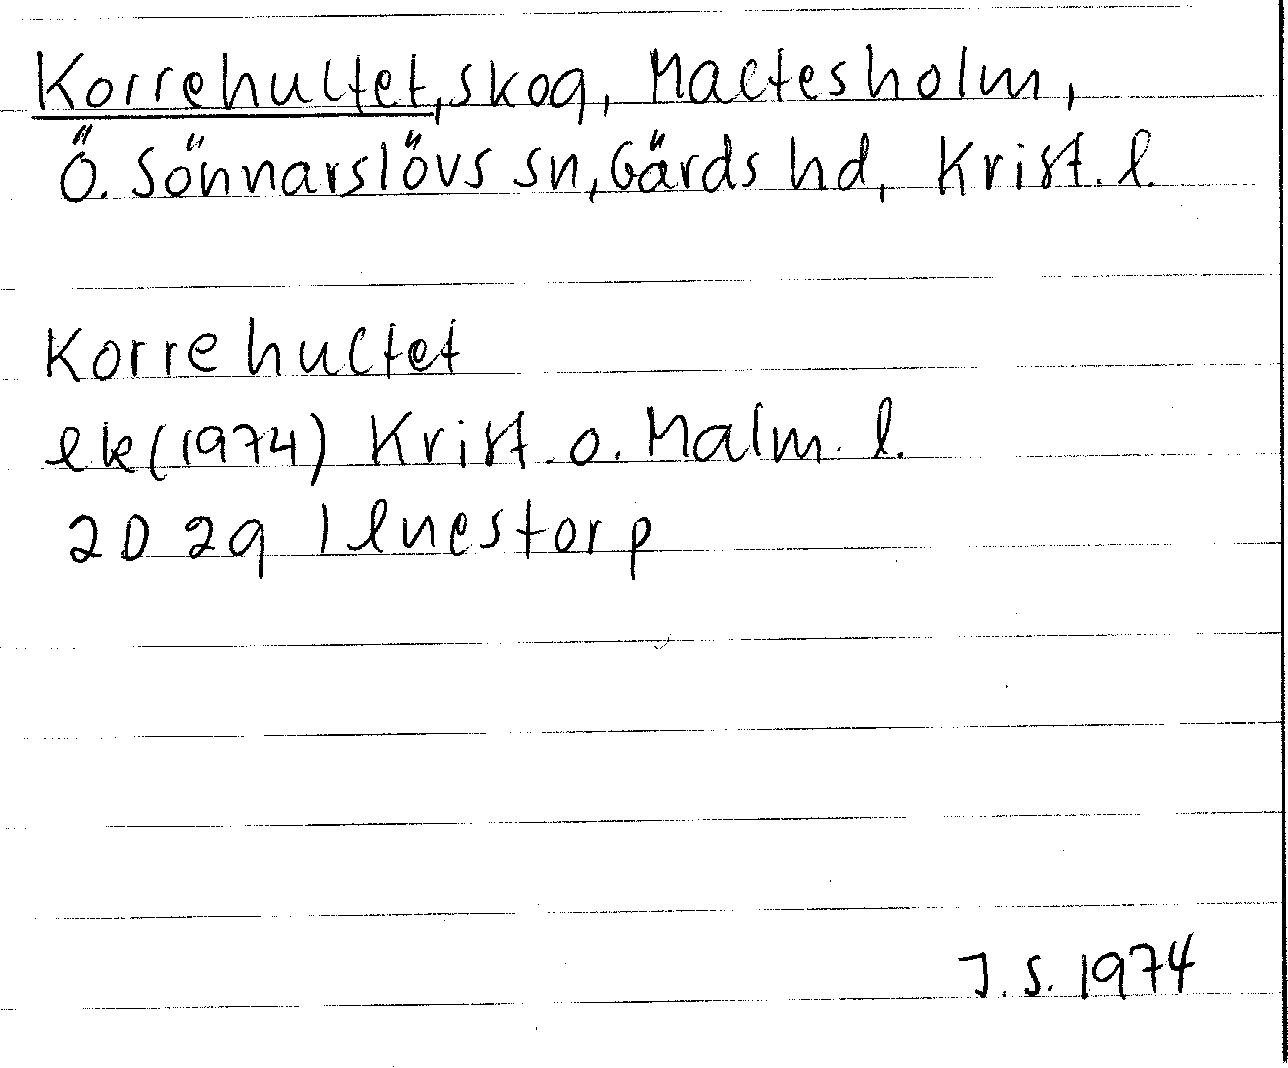 Korrehultet, skog, Maltesholm,
Ö. Sönnarslövs sn, Gärds hd, Krist. l.
Korrehultet
ek (1974) Krist. o. Malm. l.
2D 2g Illnestorp
J. S. 1974